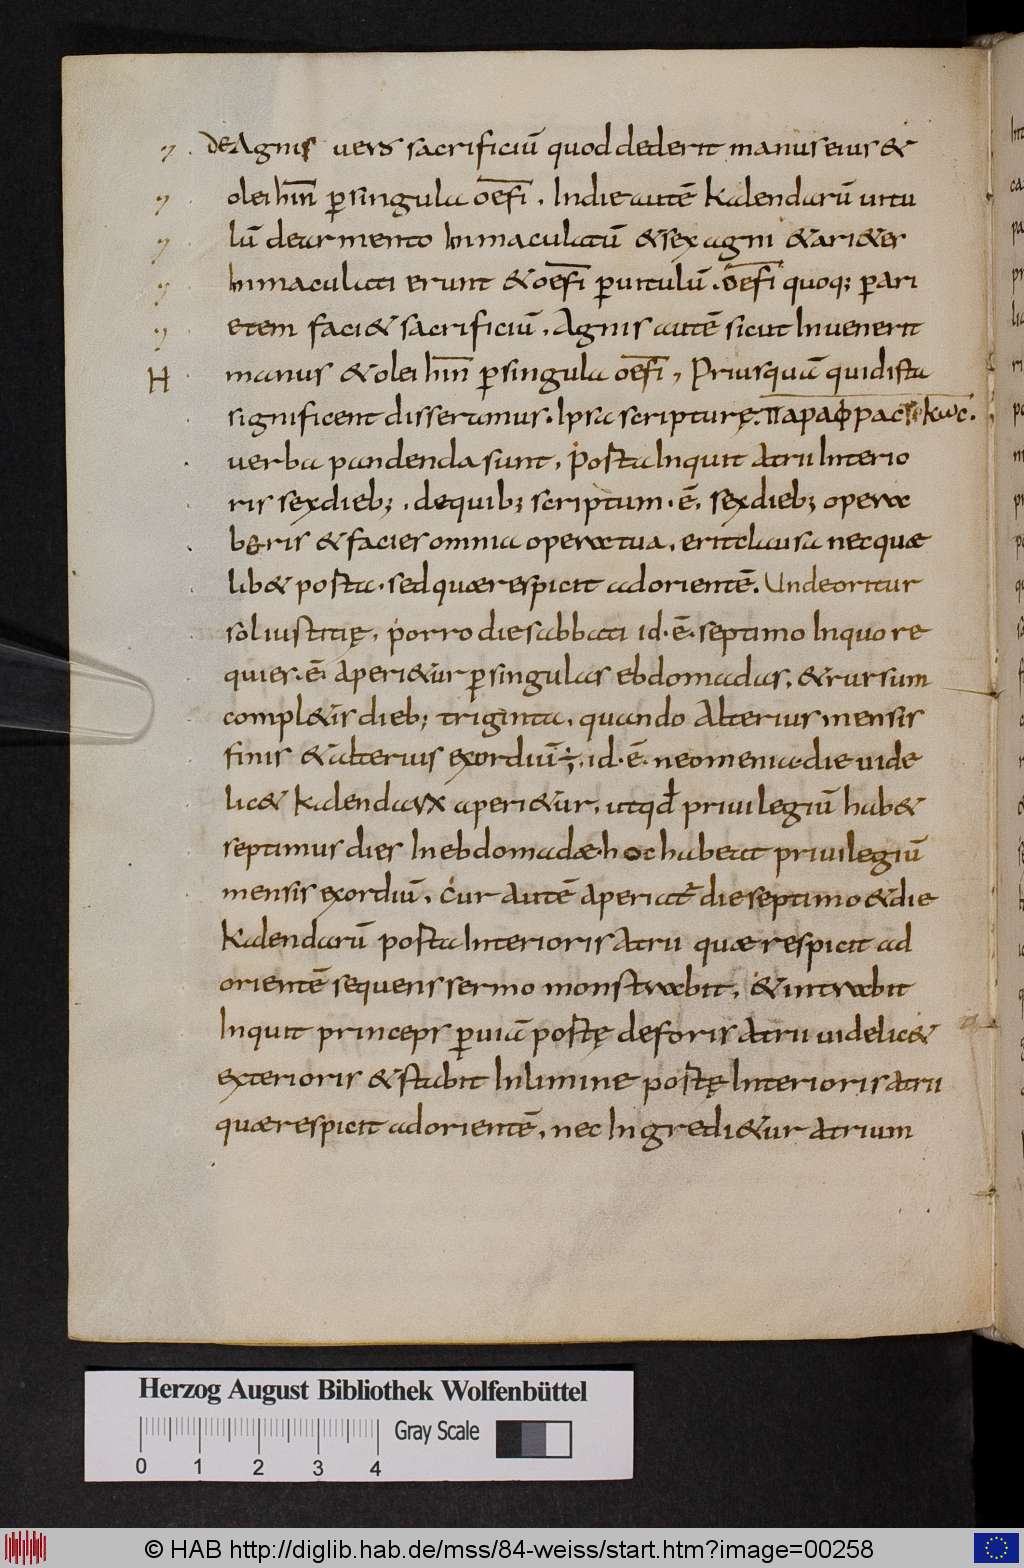 de Agnis vero sacrificiū quod dederit manus eius &
olei hin p̄ singula oefi. In die autē kalendarū uitu
lū de armento inmaculatū & sex agni & ari&es
inmaculati erunt & oefi p̄ uitulū. oefi quoq; p̄ ari
etem faci& sacrificiū. Agnis autē sicut Inuenerit
H manus & olei hin p̄ singula oefi, Priusquā quid ista
significent disseramus. Ipsa scripturę. παραφραστικως.
verba pandenda sunt. Porta Inquit atrii Interio
ris sex dieb; . de quib; scriptum. ē. sex dieb; opera
beris & facies omnia opera tua. erit clausa nec quæ
lib& porta. sed quæ respicit ad orientē. Unde oritur
sol iustitię. porro die sabbati id. ē. septimo In quo re
quies. ē. aperi&ur p̄ singulas ebdomadas. & rursum
compl&is dieb; triginta. quando alterius mensis
finis & alterius exordiū ÷. id. ē. neomenia. die uide
lic& kalendarū aperi&ur. ut qd̄ priuilegiū hab&
septimus dies In ebdomadæ. hoc habeat priuilegiū
mensis exordiū. Cur autē aperiat̄ die septimo & die
kalendarū porta Interioris atrii quæ respicit ad
orientē sequens sermo monstrabit. & intrabit
Inquit princeps p̄ uiā portę de foris atrii uidelic&
exterioris & stabit In limine portę Interioris atrii
quæ respicit ad orientē. nec Ingredi&ur atrium
Herzog August Bibliothek Wolfenbüttel
Gray Scale
0 1 2 3 4
© HAB http://diglib.hab.de/mss/84-weiss/start.htm?image=00258